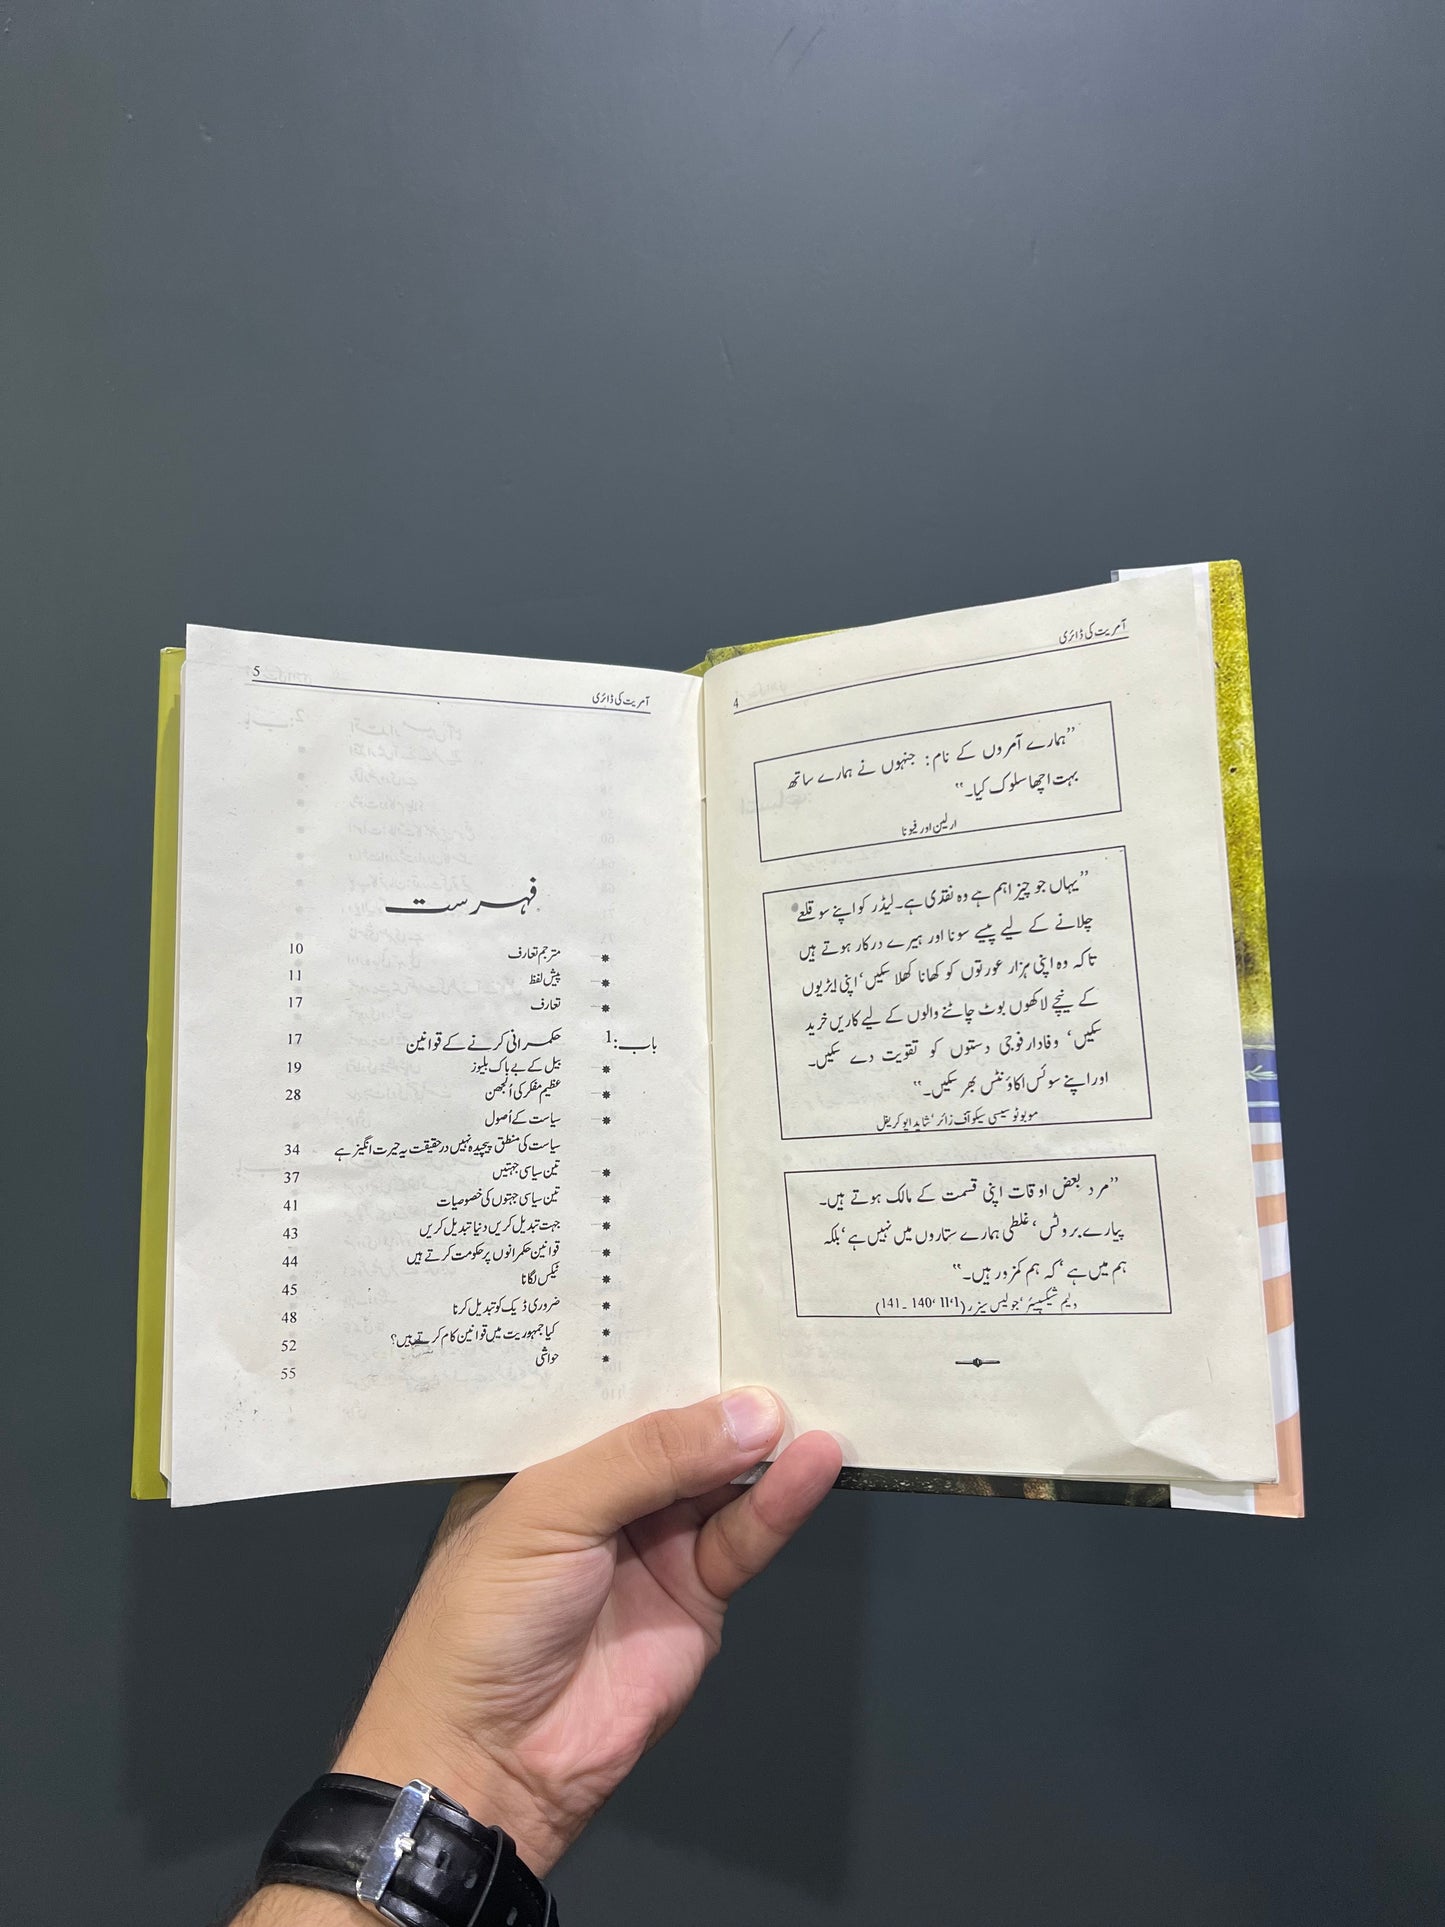 آمریت کی ڈائری
4
”ہمارے آمروں کے نام: جنہوں نے ہمارے ساتھ
بہت اچھا سلوک کیا۔“
ارلین اور فیونا
”یہاں جو چیز اہم ہے وہ نقدی ہے۔ لیڈر کو اپنے سو قلعے
چلانے کے لیے پیسے سونا اور ہیرے درکار ہوتے ہیں
تاکہ وہ اپنی ہزار عورتوں کو کھانا کھلا سکیں‘ اپنی ایڑیوں
کے نیچے لاکھوں بوٹ چاٹنے والوں کے لیے کاریں خرید
سکیں‘ وفادار فوجی دستوں کو تقویت دے سکیں۔
اور اپنے سوئس اکاؤنٹس بھر سکیں۔“
موبوٹو سیسی سیکو آف زائر‘ شاید ابوکریفل
”مرد بعض اوقات اپنی قسمت کے مالک ہوتے ہیں۔
پیارے بروٹس‘ غلطی ہمارے ستاروں میں نہیں ہے‘ بلکہ
ہم میں ہے‘ کہ ہم کمزور ہیں۔“
ولیم شیکسپیئر‘ جولیس سیزر (I‘II‘ 140۔141)
5
آمریت کی ڈائری
فہرست
مترجم تعارف 10
پیش لفظ 11
تعارف 17
باب:1 حکمرانی کرنے کے قوانین 17
بیل کے بے باک بلیوز 19
عظیم مفکر کی اُلجھن 28
سیاست کے اُصول
سیاست کی منطق پیچیدہ نہیں درحقیقت یہ حیرت انگیز ہے 34
تین سیاسی جہتیں 37
تین سیاسی جہتوں کی خصوصیات 41
جہت تبدیل کریں دنیا تبدیل کریں 43
قوانین حکمرانوں پر حکومت کرتے ہیں 44
ٹیکس لگانا 45
ضروری ڈیک کو تبدیل کرنا 48
کیا جمہوریت میں قوانین کام کرتے ہیں؟ 52
حواشی 55